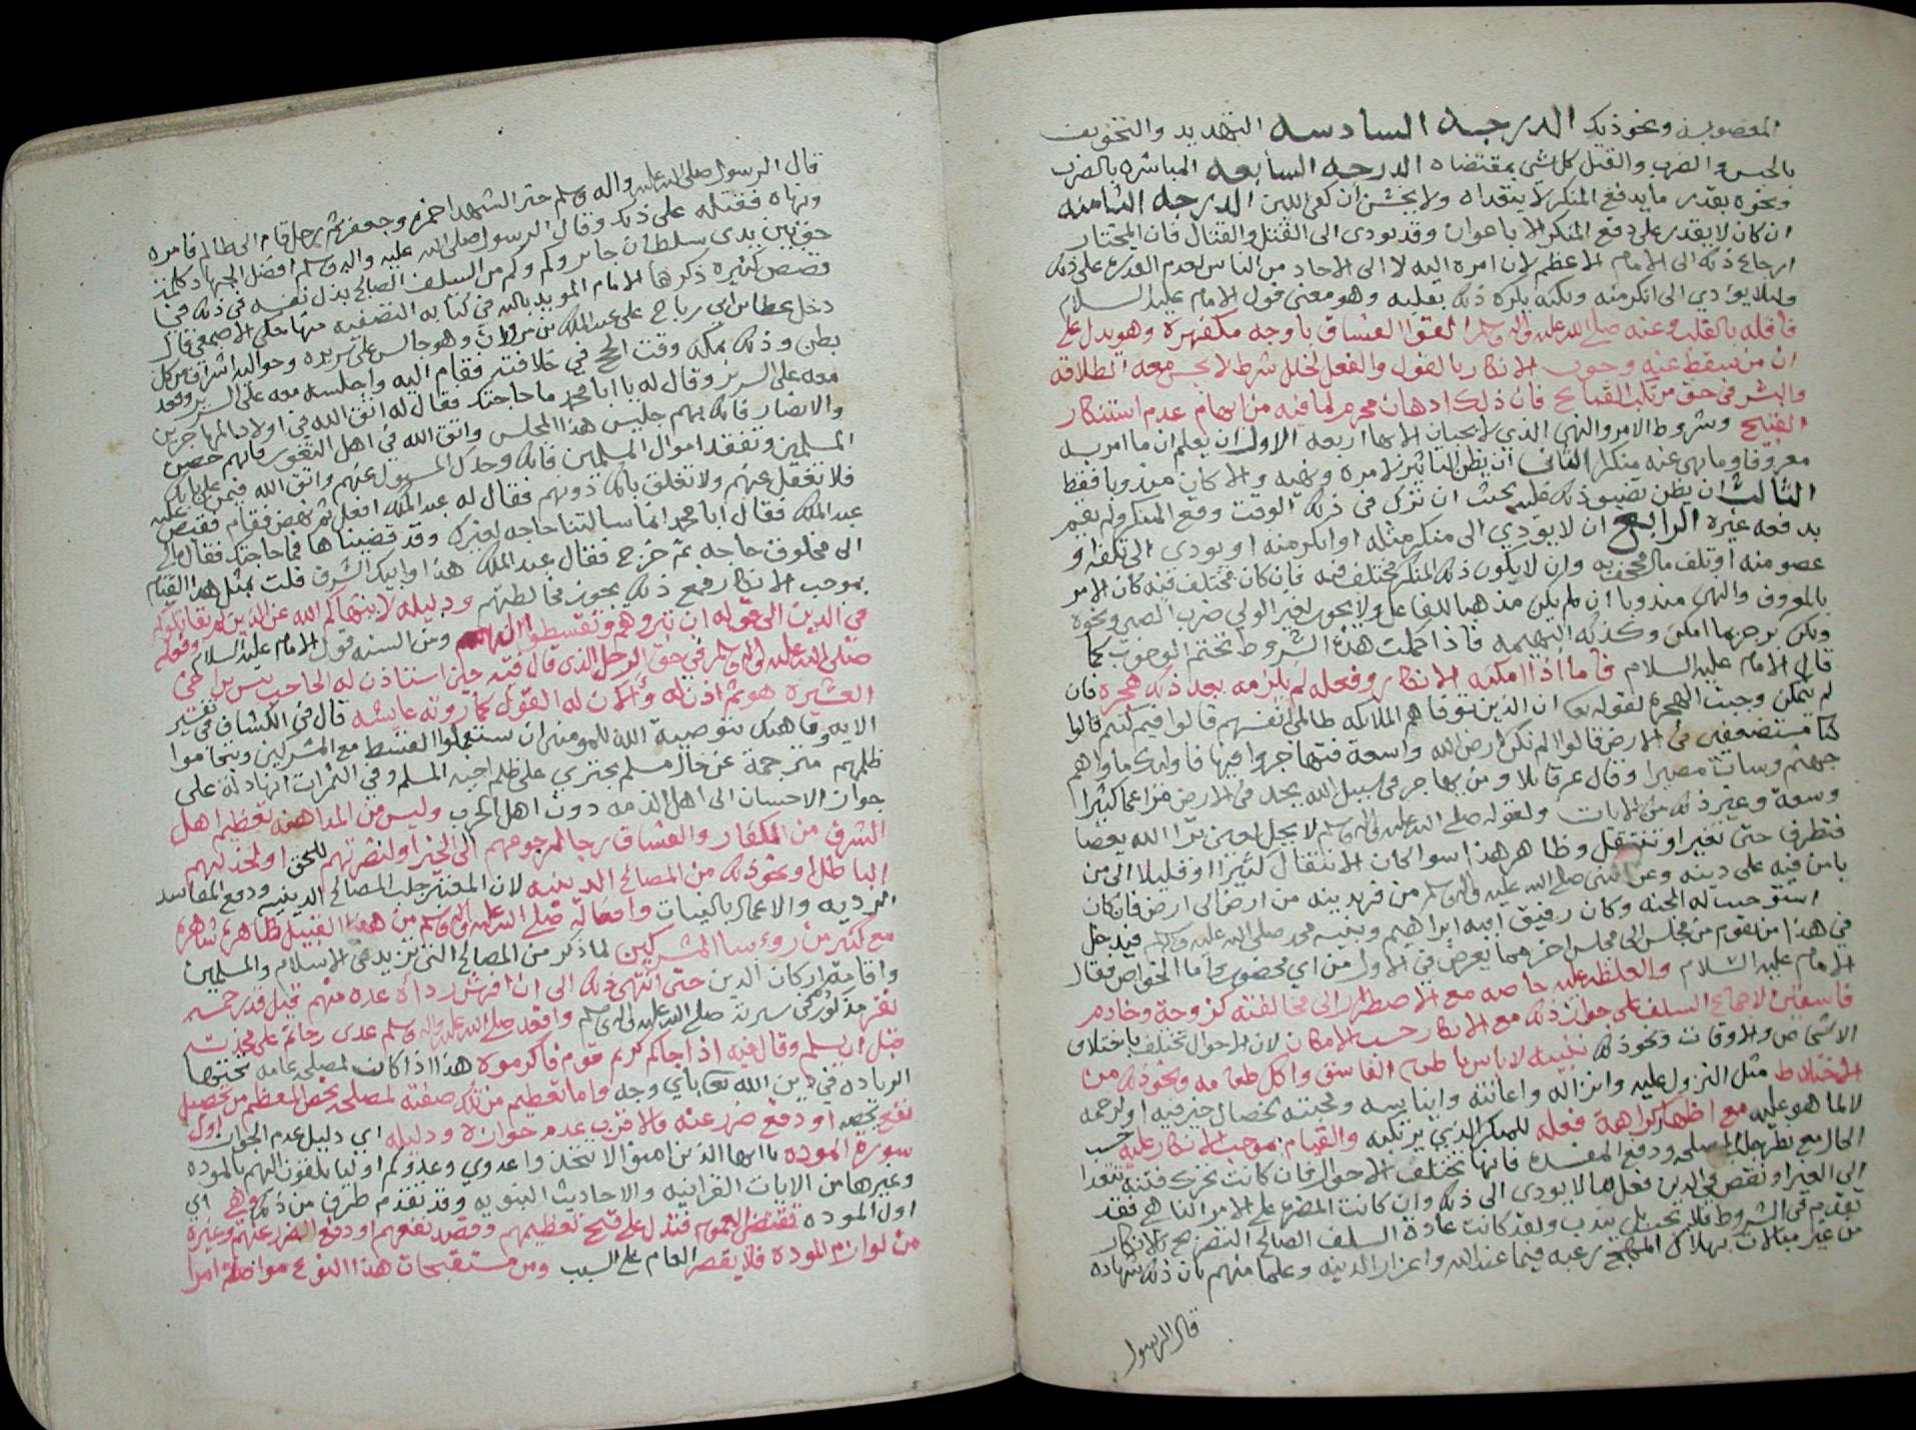 المغصوبة ونحو ذلك الدرجه السادسه التهديد والتخويف
بالحبس والضرب والقتل كل شي بمقتضاه الدرجه السابعه المباشره بالضرب
ونحوه بقدر ما يدفع المنكر لا يتعداه ولا يخشن ان كفى اللين الدرجه الثامنه
ان كان لا يقدر على دفع المنكر الا باعوان وقد يودى الى القتل والقتال فان المختار
ارجاع ذلك الى الامام الاعظم لان امره اليه لا الى الاحاد من الناس لعدم القدره على ذلك
وليلا يودي الى انكر منه ولكنه يكره ذلك بقلبه وهو معنى قول الامام عليه السلام
فاقله بالقلب وعنه صلى الله عليه واله وسلم القوا الفساق باوجه مكفهرة وهو يدل على
ان من سقط عنه وجوب الانكار بالقول والفعل لخلل شرط لا يحسن معه الطلاقه
والبشر فى حق مرتكب القبايح فان ذلك ادهان محرم لما فيه من ايهام عدم استنكار
القبيح وشروط الامر والنهي الذي لا يجبان الا بها اربعه الاول ان يعلم ان ما امر به
معروفا وما نهى عنه منكرا الثانى ان يظن التاثير لامره ونهيه والا كان مندوبا فقط
الثالث ان يظن تضيق ذلك عليه بحيث ان ترك فى ذلك الوقت وقع المنكر ولم يقم
بدفعه غيره الرابع ان لا يودي الى منكر مثله او انكر منه او يودى الى تلفه او
عضو منه او تلف مال مجحف به وان لا يكون ذلك المنكر مختلف فيه فان كان مختلف فيه كان الامر
بالمعروف والنهي مندوبا ان لم يكن مذهبا للفاعل ولا يجوز لغير الولي ضرب الصبي ونحوه
ولكن يزجرهما امكن وكذلك البهيمه فاذا كملت هذه الشروط تحتم الوجوب كما
قال الامام عليه السلام فاما اذا امكنه الانكار وفعله لم يلزمه بعد ذلك هجرة فان
لم يتمكن وجبت الهجره لقوله تعا ان الذين توفاهم الملايكه ظالمى انفسهم قالوا فيم كنتم قالوا
كنا مستضعفين فى الارض قالوا الم تكن ارض الله واسعة فتهاجروا فيها فاوليك ماواهم
جهنم وسات مصيرا وقال عز قايلا ومن يهاجر فى سبيل الله يجد فى الارض مراغما كثيرا
وسعة وغير ذلك من الايات ولقوله صلى الله عليه واله وسلم لا يحل لعين ترا الله يعصا
فتطرف حتى تغير او تنتقل وظاهر هذا سوا كان الانتقال كثيرا او قليلا الى من
يامن فيه على دينه وعن النبي صلى الله عليه واله وسلم من فر بدينه من ارض الى ارض فان كان
استوجب له الجنه وكان رفيق ابيه ابراهيم ونبيه محمد صلى الله عليه وسلم فيدخل
فى هذا من يقوم من مجلس الى مجلس اخر مما يعرض فى الاول من اي محضور واما الخواص فقال
الامام عليه السلام والغلظه عليه خاصه مع الاضطرار الى مخالفته كزوجة وخادم
فاسقين لاجماع السلف على جواز ذلك مع الانكار حسب الامكان لان الاحوال تختلف باختلاف
الاشخاص والاوقات ونحو ذلك تنبيه لا باس باطعام الفاسق واكل طعامه ونحو ذلك من
الاختلاط مثل النزول عليه وانزاله واعانته وايناسه ومحبته لخصال خير فيه او لرحمه
لا لما هو عليه مع اظهار كراهة فعله للمنكر الذي يرتكبه والقيام بموجب الانكار عليه حسب
الحال مع نظر جلب المصلحه ودفع المفسده فانها تختلف الاحوال فان كانت تحرك فتنه تتعدا
الى الغير او نقص فى الدين فعل ما لا يودى الى ذلك وان كانت المضره على الامر الناهي فقد
تقدم فى الشروط فلا يجب بل يندب ولقد كانت عادة السلف الصالح التصريح بالانكار
من غير مبالات بهلاك المهج رغبه فيما عند الله واعزاز الدينه وعلما منهم بان ذلك شهاده
قال الرسول
قال الرسول صلى الله عليه واله وسلم خير الشهدا حمزه وجعفر ثم رجل قام الى ظالم فامره
ونهاه فقتله على ذلك وقال الرسول صلى الله عليه واله وسلم افضل الجهاد كلمة
حق بين يدى سلطان جاير وكم وكم من السلف الصالح بذل نفسه فى ذلك فى
قصص كثيره ذكرها الامام المويد بالله فى كتابه التصفيه منها حكى الاصمعي قال
دخل عطا بن ابي رباح على عبد الملك بن مروان وهو جالس على سريره وحواليه اشراف من كل
بطن وذلك بمكه وقت الحج في خلافته فقام اليه واجلسه معه على السرير وقعد
معه على السرير وقال له يا ابا محمد ما حاجتك فقال له اتق الله فى اولاد المهاجرين
والانصار فانك بهم جليس هذا المجلس واتق الله في اهل الثغور فانهم حصن
المسلمين وتفقد اموال المسلمين فانك وحدك المسول عنهم واتق الله فيمن على بابك
فلا تغفل عنهم ولا تغلق بابك دونهم فقال له عبد الملك افعل ثم نهض فقام فقبض عليه
عبد الملك فقال ابا محمد انما سالتنا حاجه لغيرك وقد قضيناها فما حاجتك فقال مالى
الى مخلوق حاجه ثم خرج فقال عبد الملك هذا وابيك الشرف قلت بمثل هذا القيام
بموجب الانكار فمع ذلك يجوز مخالطتهم ودليله لا ينهاكم الله عن الذين لم يقاتلوكم
فى الدين الى قوله ان تبروهم وتقسطوا اليهم ومن السنه قول الامام عليه السلام وفعله
صلى الله عليه واله وسلم فى حق الرجل الذى قال فيه حين استاذن له الحاجب بيس
العشيره هو ثم اذن له وألان له القول كما روته عايشه قال فى الكشاف فى تفسير
الايه وناهيك بتوصية الله للمومنين ان يستعملوا القسط مع المشركين ويتحاموا
ظلمهم مترجمة عن حال مسلم يجتري على ظلم اخيه المسلم وفي الثمرات انها دالة على
جواز الاحسان الى اهل الذمه دون اهل الحرب وليس من المداهنه تعظيم اهل
الشرف من الكفار والفساق رجا لرجوعهم الى الخير او لنصرتهم للحق او لخذلهم
الباطل او نحو ذلك من المصالح الدينيه لان المعتبر جلب المصالح الدينيه ودفع المفاسد
الرديه والاعمال بالنيات وافعاله صلى الله عليه واله وسلم من هذا القبيل ظاهرة شاهرة
مع كثير من روءسا المشركين لما ذكر من المصالح التى تزيد فى الاسلام والمسلمين
واقامة اركان الدين حتى انتهى ذلك الى ان افرش رداه عده منهم قيل قدر خمسه
نفر مذكور فى سيرته صلى الله عليه واله وسلم واقعد صلى الله عليه واله وسلم عدى بن حاتم على مخدته
قبل ان يسلم وقال فيه اذا جاكم كريم قوم فاكرموه هذا اذا كانت لمصلحه عامه نحتوها
الزياده في دين الله تعا باي وجه واما تعظيم من تلك صفته لمصلحه تخص المعظم من تحصيل
نفع يخصه او دفع ضرر عنه فالاقرب عدم جوازه ودليله اي دليل عدم الجواز اول
سورة الموده يا ايها الذين امنوا لا تتخذوا عدوي وعدوكم اوليا يلقون اليهم بالموده
وغيرها من الايات القرانيه والاحاديث النبويه وقد تقدم طرف من ذكرها وهي اي
اول الموده تقتضى العموم فتدل على قبح تعظيمهم وقصد نفعهم او دفع الضرر عنهم وغيره
من لوازم الموده فلا يقصر العام على السبب ومن مستقبحات هذا النوع مواصلة امرا